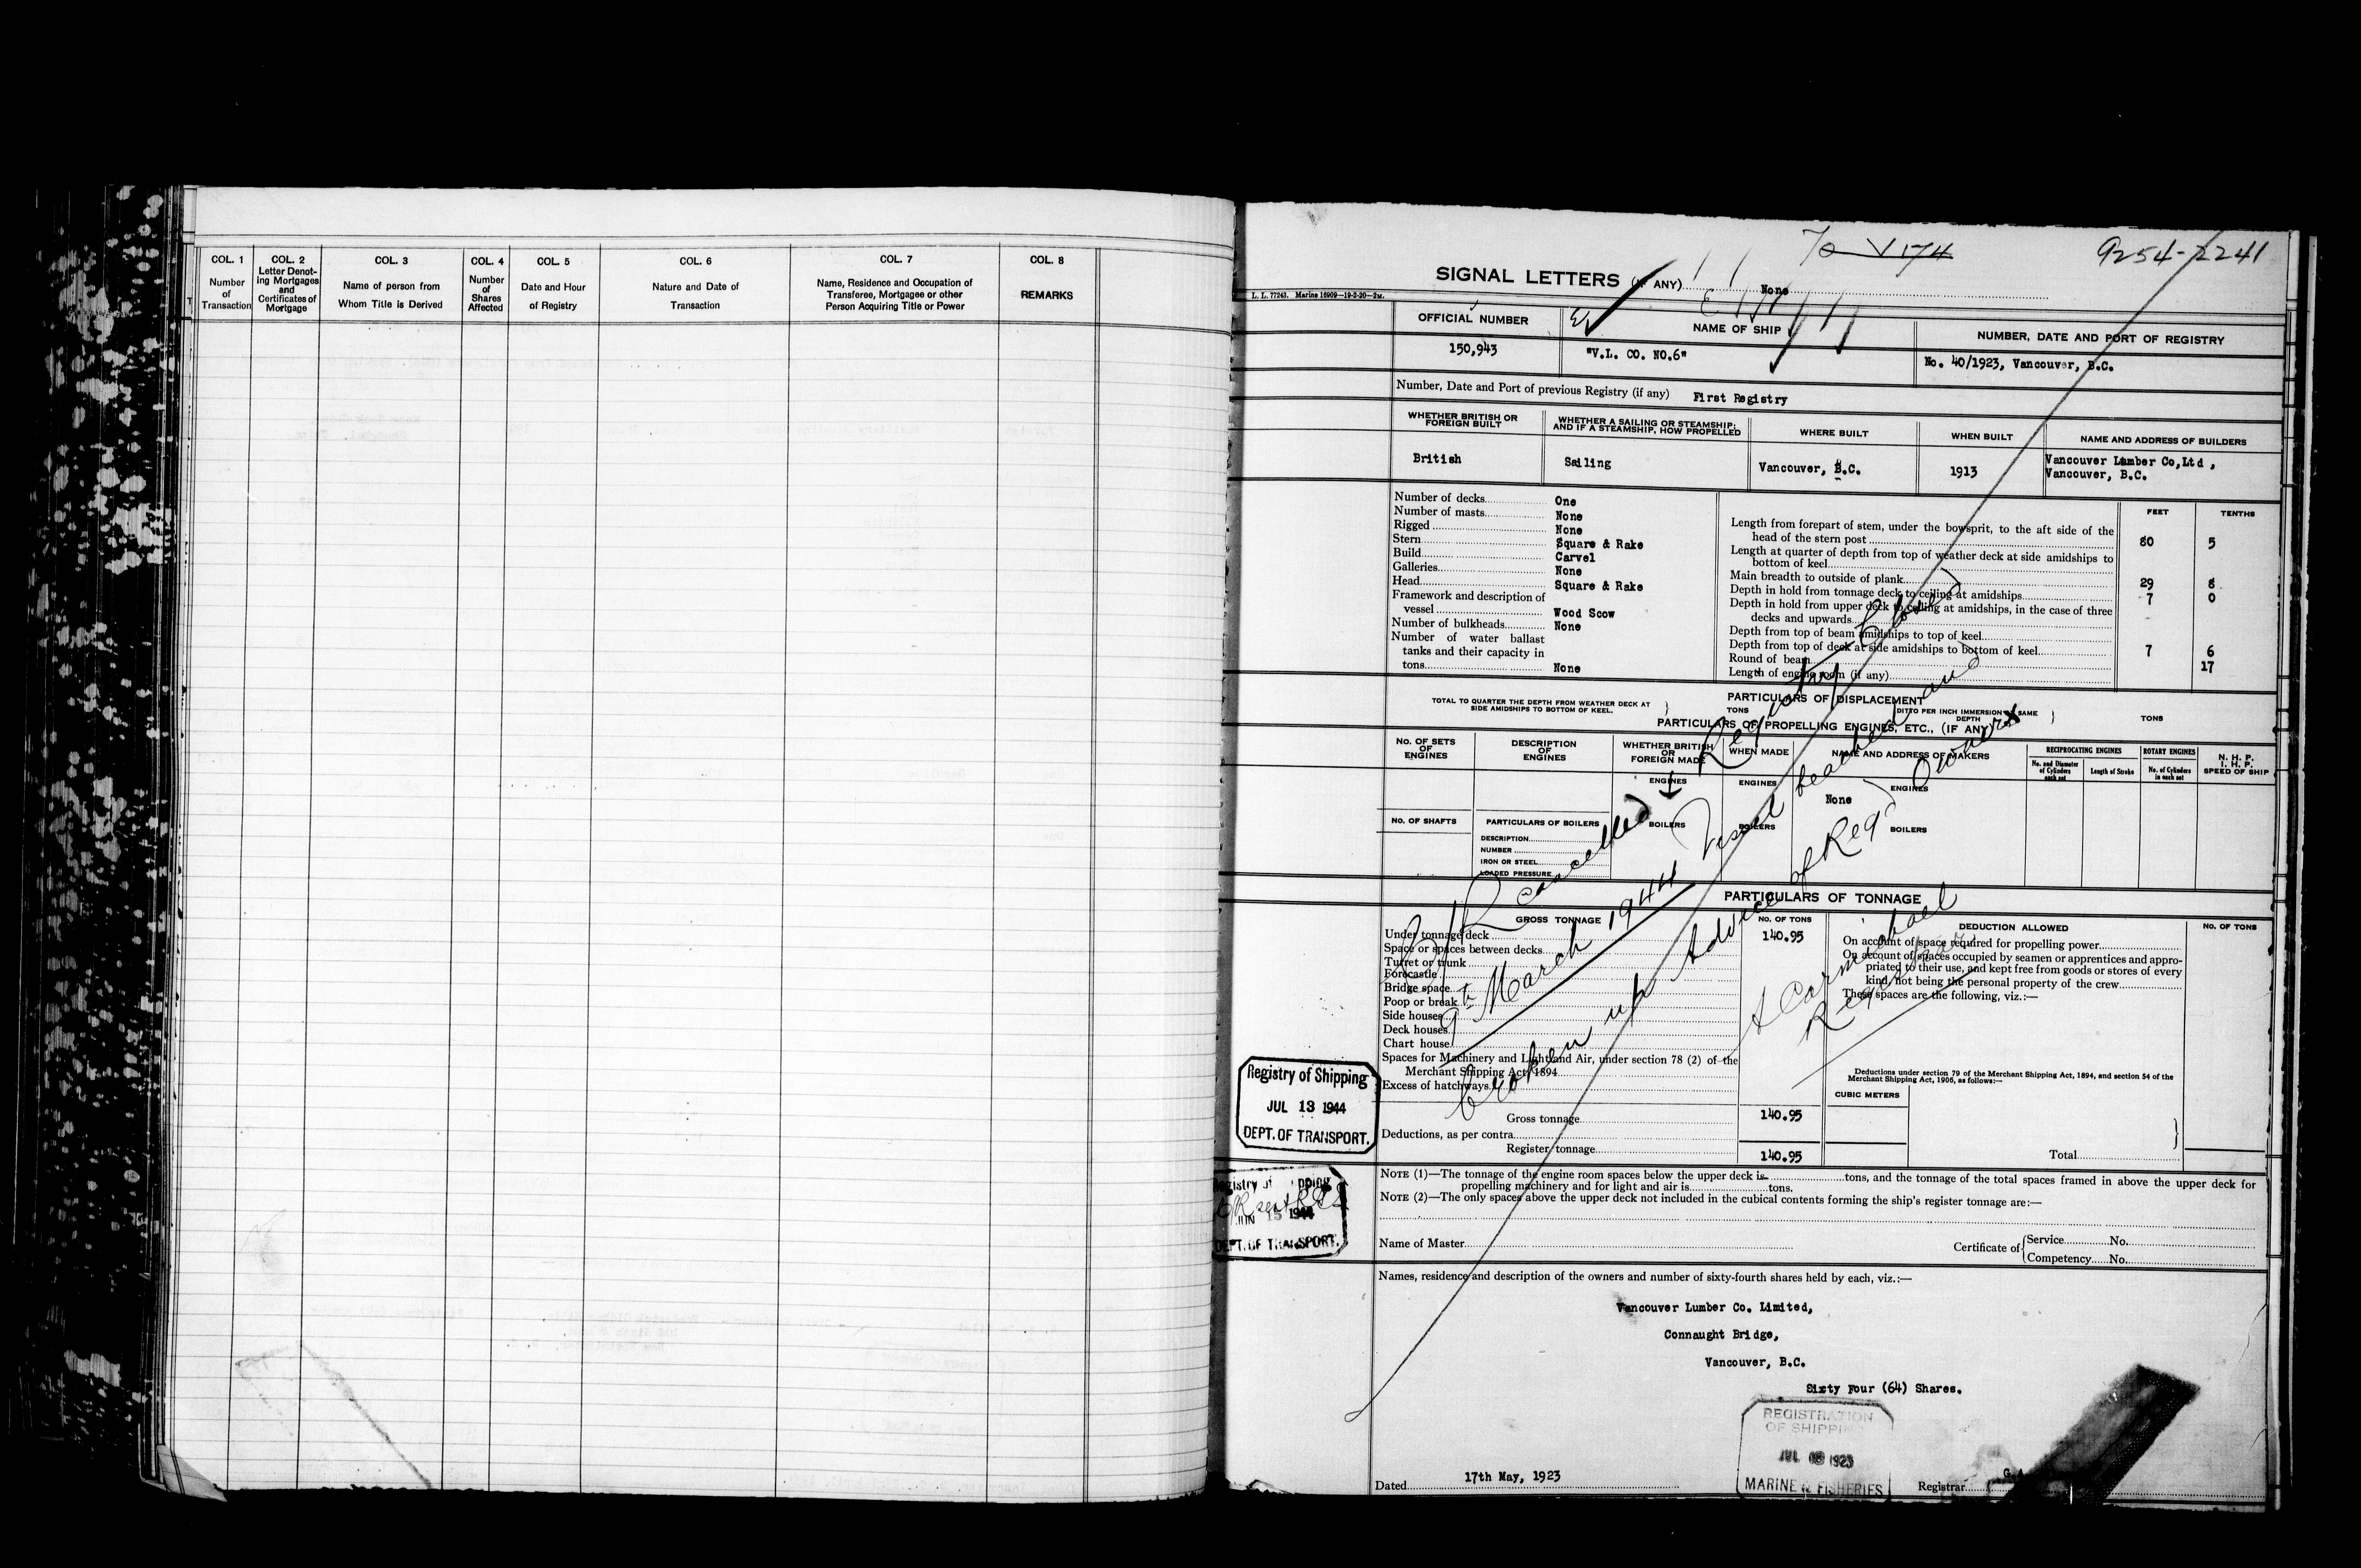 COL. 1
Number
of
Transaction
COL. 2
Letter Denot-
ing Mortgages
and
Certificates of
Mortgage
COL. 3
Name of person from
Whom Title is Derived
COL. 4
Number
of
Shares
Affected
COL. 5
Date and Hour
of Registry
COL. 6
Nature and Date of
Transaction
COL. 7
Name, Residence and Occupation of
Transferee, Mortgagee or other
Person Acquiring Title or Power
COL. 8
REMARKS
To V174
9254-2241
SIGNAL LETTERS (IF ANY) None
L. L. 77243. Marine 16909—19-2-20—2M.
OFFICIAL NUMBER
150,943
NAME OF SHIP
"V.L. CO. NO.6"
NUMBER, DATE AND PORT OF REGISTRY
No. 40/1923, Vancouver, B.C.
Number, Date and Port of previous Registry (if any) First Registry
WHETHER BRITISH OR
FOREIGN BUILT
British
WHETHER A SAILING OR STEAMSHIP;
AND IF A STEAMSHIP, HOW PROPELLED
Sailing
WHERE BUILT
Vancouver, B.C.
WHEN BUILT
1913
NAME AND ADDRESS OF BUILDERS
Vancouver Lumber Co,Ltd,
Vancouver, B.C.
Number of decks One
Number of masts None
Rigged None
Stern Square & Rake
Build Carvel
Galleries None
Head Square & Rake
Framework and description of
vessel Wood Scow
Number of bulkheads None
Number of water ballast
tanks and their capacity in
tons None
FEET TENTHS
Length from forepart of stem, under the bowsprit, to the aft side of the
head of the stern post 80 5
Length at quarter of depth from top of weather deck at side amidships to
bottom of keel
Main breadth to outside of plank 29 8
Depth in hold from tonnage deck to ceiling at amidships 7 0
Depth in hold from upper deck to ceiling at amidships, in the case of three
decks and upwards
Depth from top of beam amidships to top of keel
Depth from top of deck at side amidships to bottom of keel 7 6
Round of beam 17
Length of engine room (if any)
PARTICULARS OF DISPLACEMENT
TOTAL TO QUARTER THE DEPTH FROM WEATHER DECK AT
SIDE AMIDSHIPS TO BOTTOM OF KEEL.
TONS
DITTO PER INCH IMMERSION SAME
DEPTH
TONS
PARTICULARS OF PROPELLING ENGINES, ETC., (IF ANY)
NO. OF SETS
OF
ENGINES
DESCRIPTION
OF
ENGINES
WHETHER BRITISH
OR
FOREIGN MADE
WHEN MADE
NAME AND ADDRESS OF MAKERS
RECIPROCATING ENGINES
No. and Diameter
of Cylinders
each set
Length of Stroke
ROTARY ENGINES
No. of Cylinders
in each set
N. H. P.
I. H. P.
SPEED OF SHIP
ENGINES ENGINES ENGINES
None
NO. OF SHAFTS
PARTICULARS OF BOILERS
BOILERS BOILERS BOILERS
DESCRIPTION
NUMBER
IRON OR STEEL
LOADED PRESSURE
PARTICULARS OF TONNAGE
GROSS TONNAGE
NO. OF TONS
Under tonnage deck 140.95
Space or spaces between decks
Turret or trunk
Forecastle
Bridge space
Poop or break
Side houses
Deck houses
Chart house
Spaces for Machinery and Light and Air, under section 78 (2) of the
Merchant Shipping Act, 1894
Excess of hatchways
Gross tonnage 140.95
Deductions, as per contra
Register tonnage 140.95
DEDUCTION ALLOWED
NO. OF TONS
On account of space required for propelling power
On account of spaces occupied by seamen or apprentices and appro-
priated to their use, and kept free from goods or stores of every
kind, not being the personal property of the crew
These spaces are the following, viz.:—
Deductions under section 79 of the Merchant Shipping Act, 1894, and section 54 of the
Merchant Shipping Act, 1906, as follows:—
CUBIC METERS
Total
C/R cancelled & Registry Closed
9th March 1944 Vessel beached and
broken up Advice of Reg'd Owners
A Carmichael
Registrar
Registry of Shipping
JUL 13 1944
DEPT. OF TRANSPORT.
JUN 15 1944
DEPT. OF TRANSPORT.
NOTE (1)—The tonnage of the engine room spaces below the upper deck is tons, and the tonnage of the total spaces framed in above the upper deck for
propelling machinery and for light and air is tons.
NOTE (2)—The only spaces above the upper deck not included in the cubical contents forming the ship's register tonnage are:—
Name of Master
Certificate of Service No.
Competency No.
Names, residence and description of the owners and number of sixty-fourth shares held by each, viz.:—
Vancouver Lumber Co. Limited,
Connaught Bridge,
Vancouver, B.C.
Sixty Four (64) Shares.
REGISTRATION
OF SHIPPING
JUL 1923
MARINE & FISHERIES
Dated 17th May, 1923
Registrar